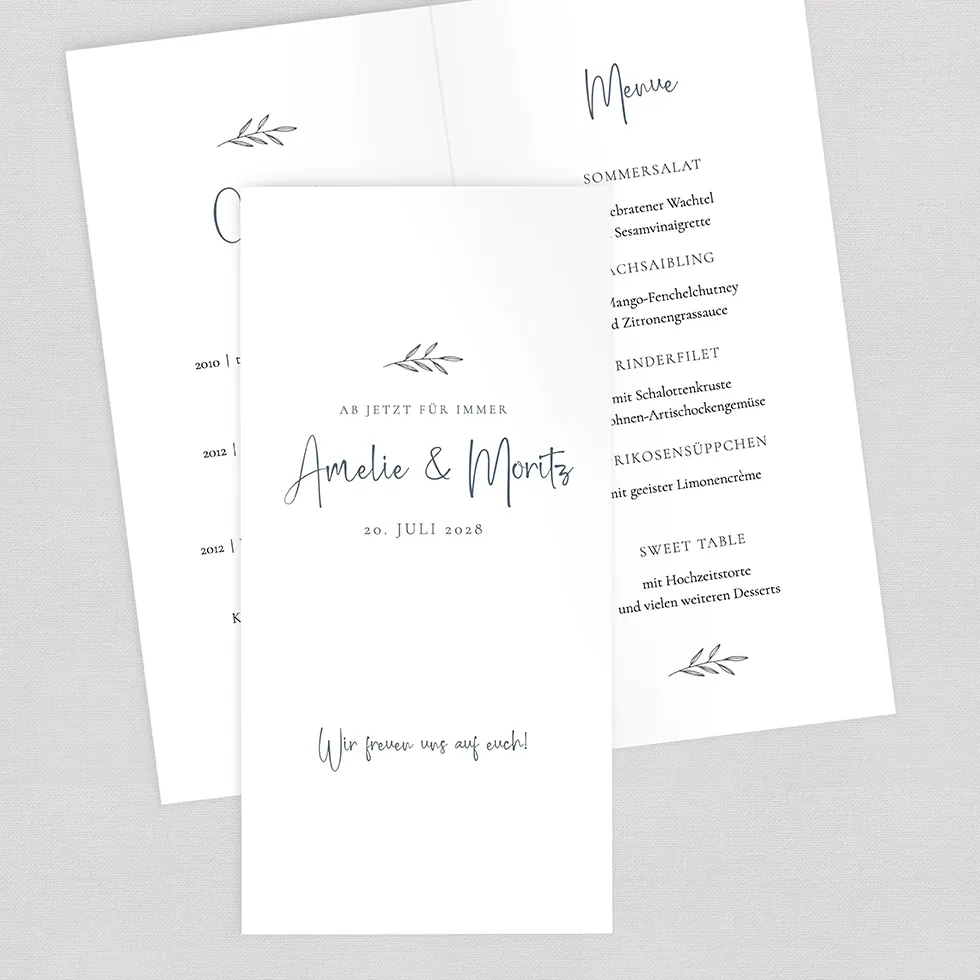 AB JETZT FÜR IMMER
Amelie & Moritz
20. JULI 2028
Wir freuen uns auf euch!
2010 |
2012 |
2012 |
Menue
SOMMERSALAT
ebratener Wachtel
Sesamvinaigrette
ACHSAIBLING
Mango-Fenchelchutney
d Zitronengrassauce
RINDERFILET
mit Schalottenkruste
ohnen-Artischockengemüse
RIKOSENSÜPPCHEN
mit geeister Limonencrème
SWEET TABLE
mit Hochzeitstorte
und vielen weiteren Desserts